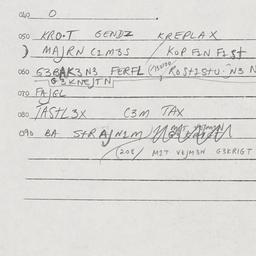 040 O
050 KRO·T GENDZ KREPLAX
MAJRN C2M3S KOP F2N F2St
060 G3BAK3N3 FERFL
G3KNEJTN
070 FAJGL
080 TASTL3X C3M TAX
090 BA StRAJN2M
(208) M2T V3JM3N G3KRIGT